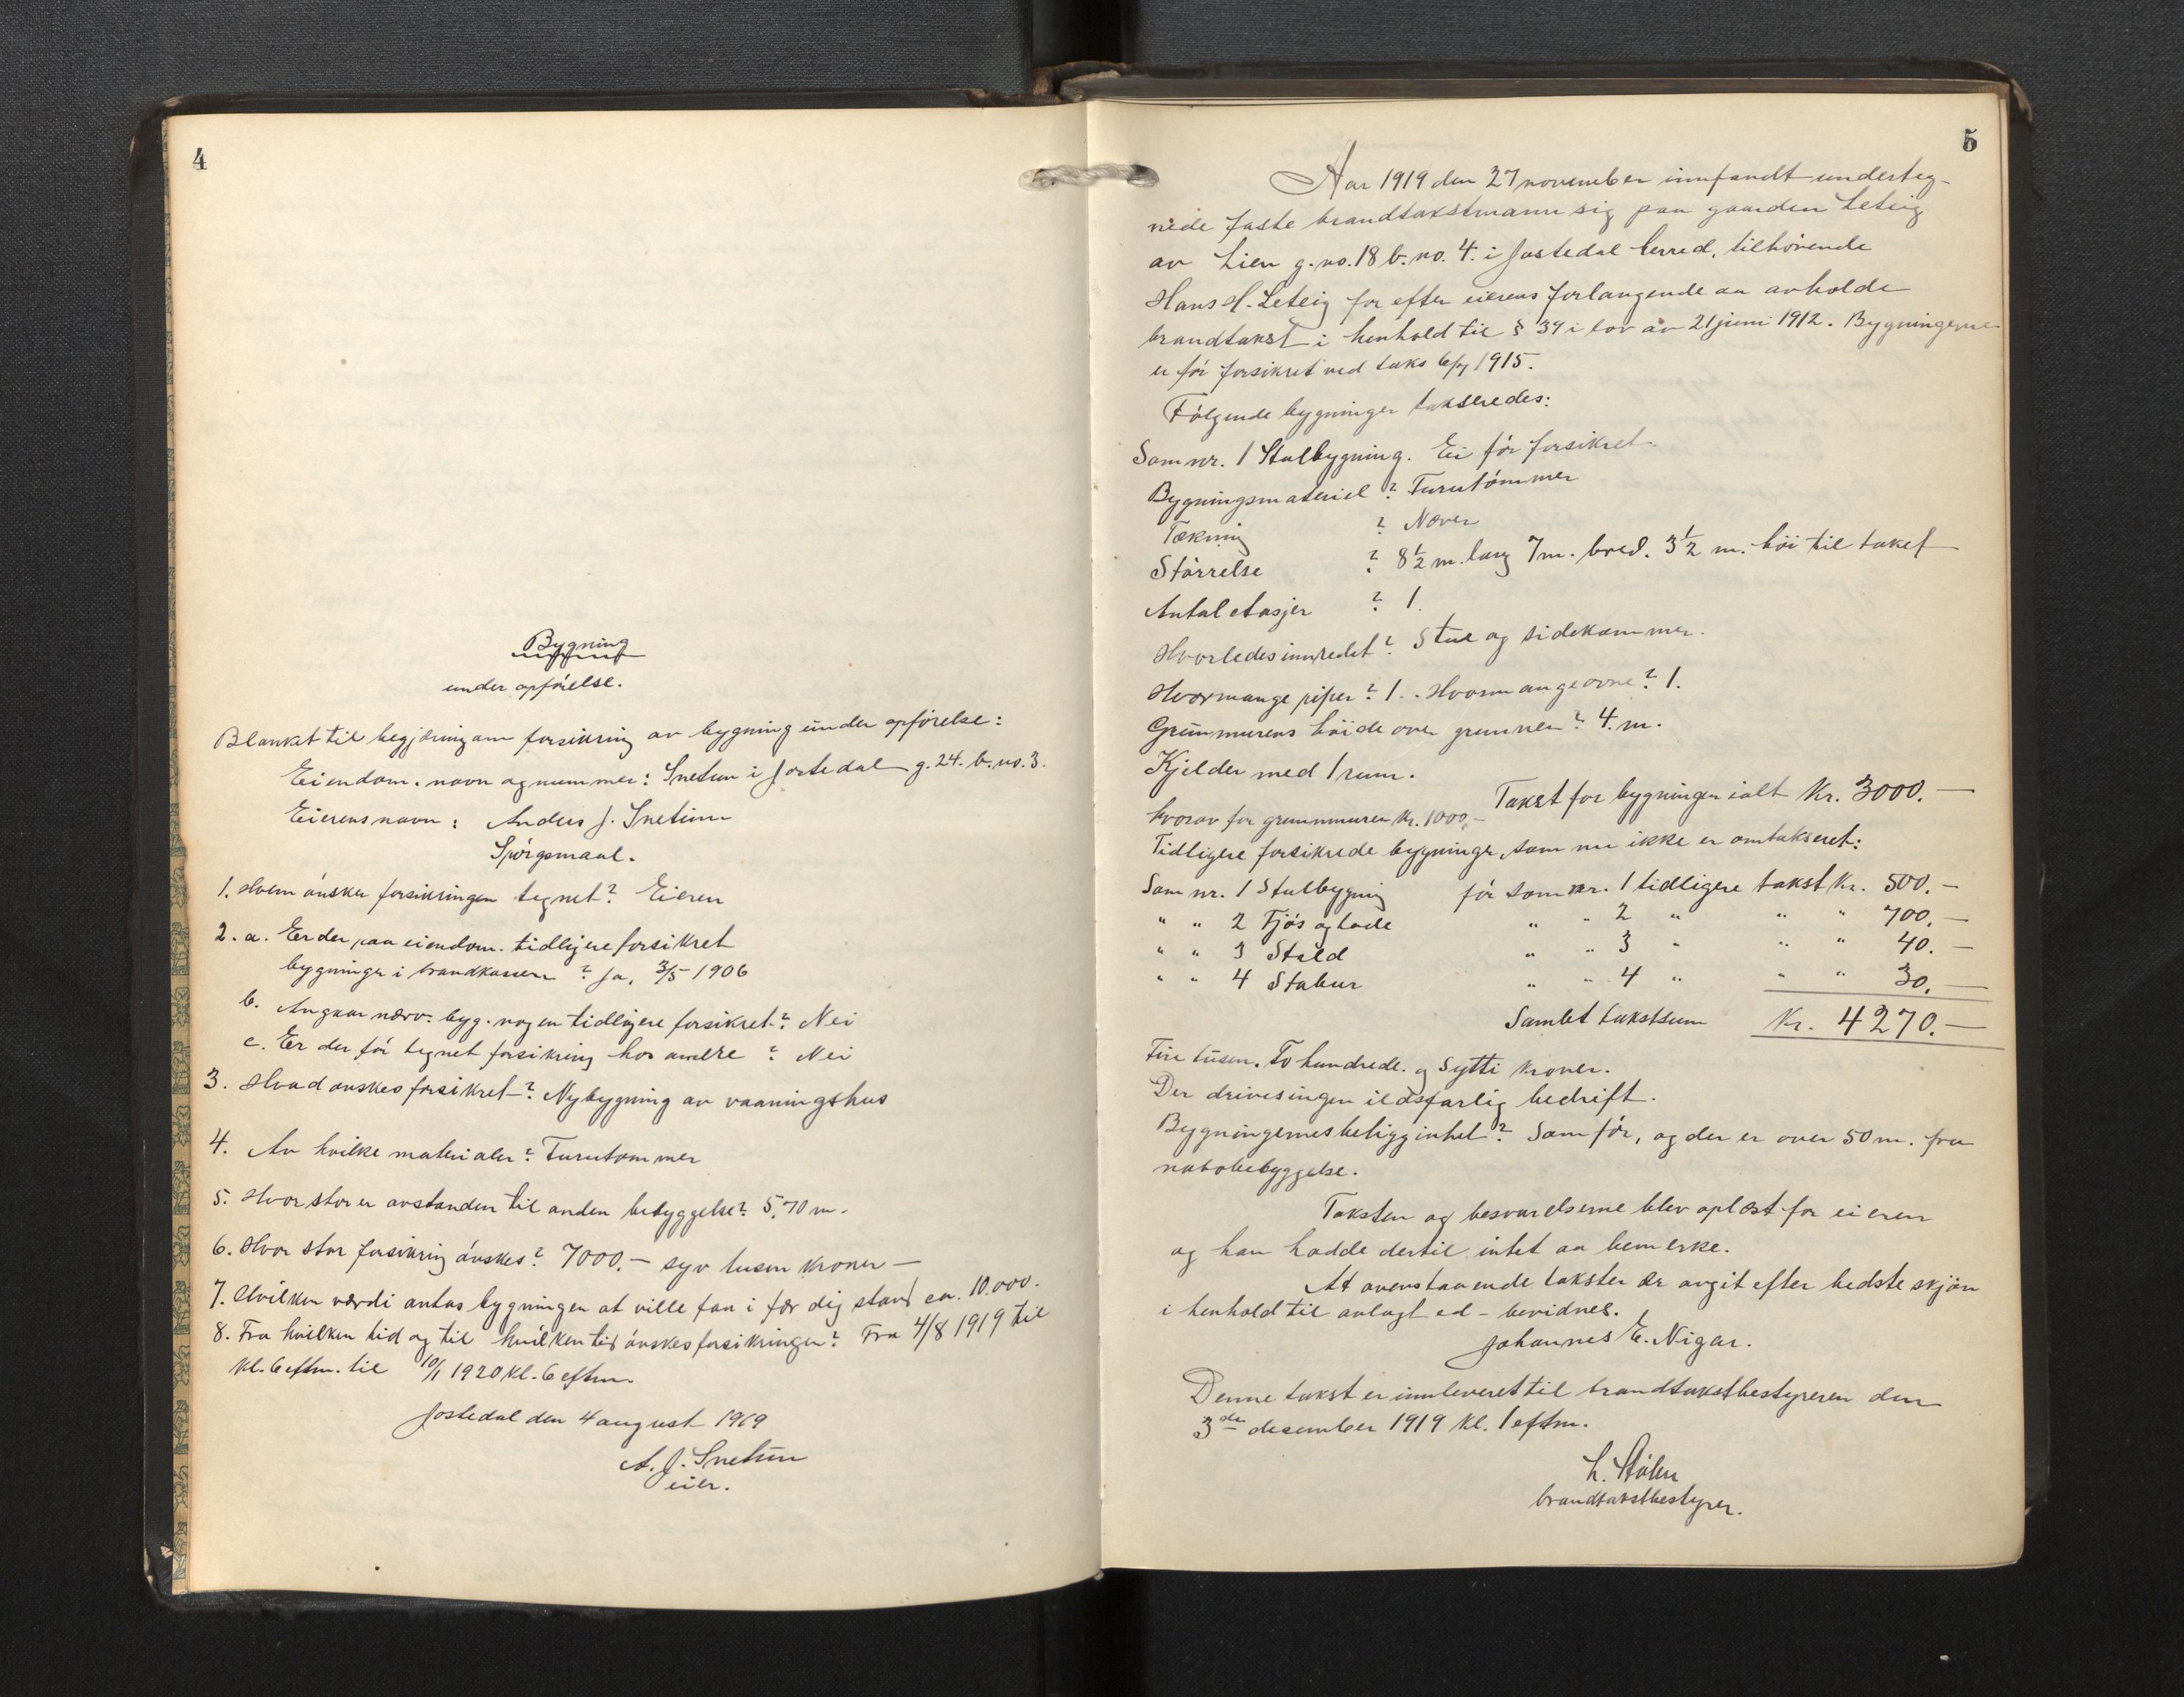 4
Bygning
under opförelse.
Blanket til begjæring om forsikring av bygning under opförelse:
Eiendom. navn og nummer: Snetun i Jostedal g. 24. b. no. 3.
Eierens navn: Anders J. Snetun
Spörgsmaal.
1. Hvem önsker forsikringen tegnet? Eieren
2. a. Er der paa eiendom. tidligere forsikret
bygninger i brandkassen? Ja, 3/5 1906
b. Angaar nærv. byg. nogen tidligere forsikret? Nei
c. Er der för tegnet forsikring hos andre? Nei
3. Hvad önskes forsikret? Nybygning av vaaningshus
4. Av hvilke materialer? Furutømmer
5. Hvor stor er avstanden til anden bebyggelse? 5,70 m.
6. Hvor stor forsikring önskes? 7000.— syv tusen kroner —
7. Hvilken værdi antas bygningen at ville faa i færdig stand ca. 10.000.
8. Fra hvilken tid og til hvilken tid önskes forsikringen? Fra 4/8 1919 til
kl. 6 eftm. til 10/1 1920 kl. 6 eftm.
Jostedal den 4 august 1919
A. J. Snetun
eier.
5
Aar 1919 den 27 november innfandt underteg-
nede faste brandtakstmann sig paa gaarden Leteig
av Lien g. no. 18 b. no. 4. i Jostedal herred, tilhörende
Hans H. Leteig for efter eierens forlangende aa avholde
brandtakst i henhold til § 34 i lov av 21 juni 1912. Bygningerne
er för forsikret ved takst 1915.
Fölgende bygninger takseredes:
Som nr. 1 Stulbygning. Ei för forsikret
Bygningsmateriel? Furutömmer
Tækning ? Næver
Störrelse ? 8 1/2 m. lang 7 m. bred. 3 1/2 m. höi til taket
Antal etasjer ? 1.
Hvorledes innredet? Stue og sidekammer.
Hvormange piper? 1.. Hvormange ovne? 1.
Grunmurens höide over grunnen? 4. m.
Kjelder med 1 rum.
Takst for bygningen ialt Kr. 3000.—
hvorav for grunnmuren Kr. 1000,—
Tidligere forsikrede bygninger, som nu ikke er omtakseret:
Som nr. 1 Stulbygning för som nr. 1 tidligere takst Kr. 500.—
" " 2 Fjös og lade " " 2 " " " 700.—
" " 3 Stald " " 3 " " " 40.—
" " 4 Stabur " " 4 " " " 30.—
Samlet takstsum Kr. 4270.—
Fire tusen. To hundrede. og Sytti kroner.
Der drives ingen ildsfarlig bedrift.
Bygningernes beligginhet? Som för, og der er over 50 m. fra
nabobebyggelse.
Taksten og besvarelserne blev oplæst for eieren
og han hadde dertil intet aa bemerke.
At ovenstaaende takster er avgit efter bedste skjön
i henhold til avlagt ed – bevidnes.
Johannes E. Nigar.
Denne takst er innleveret til brandtakstbestyreren den
3de desember 1919 kl. 1 eftm.
L. Stölen
brandtakstbestyrer.